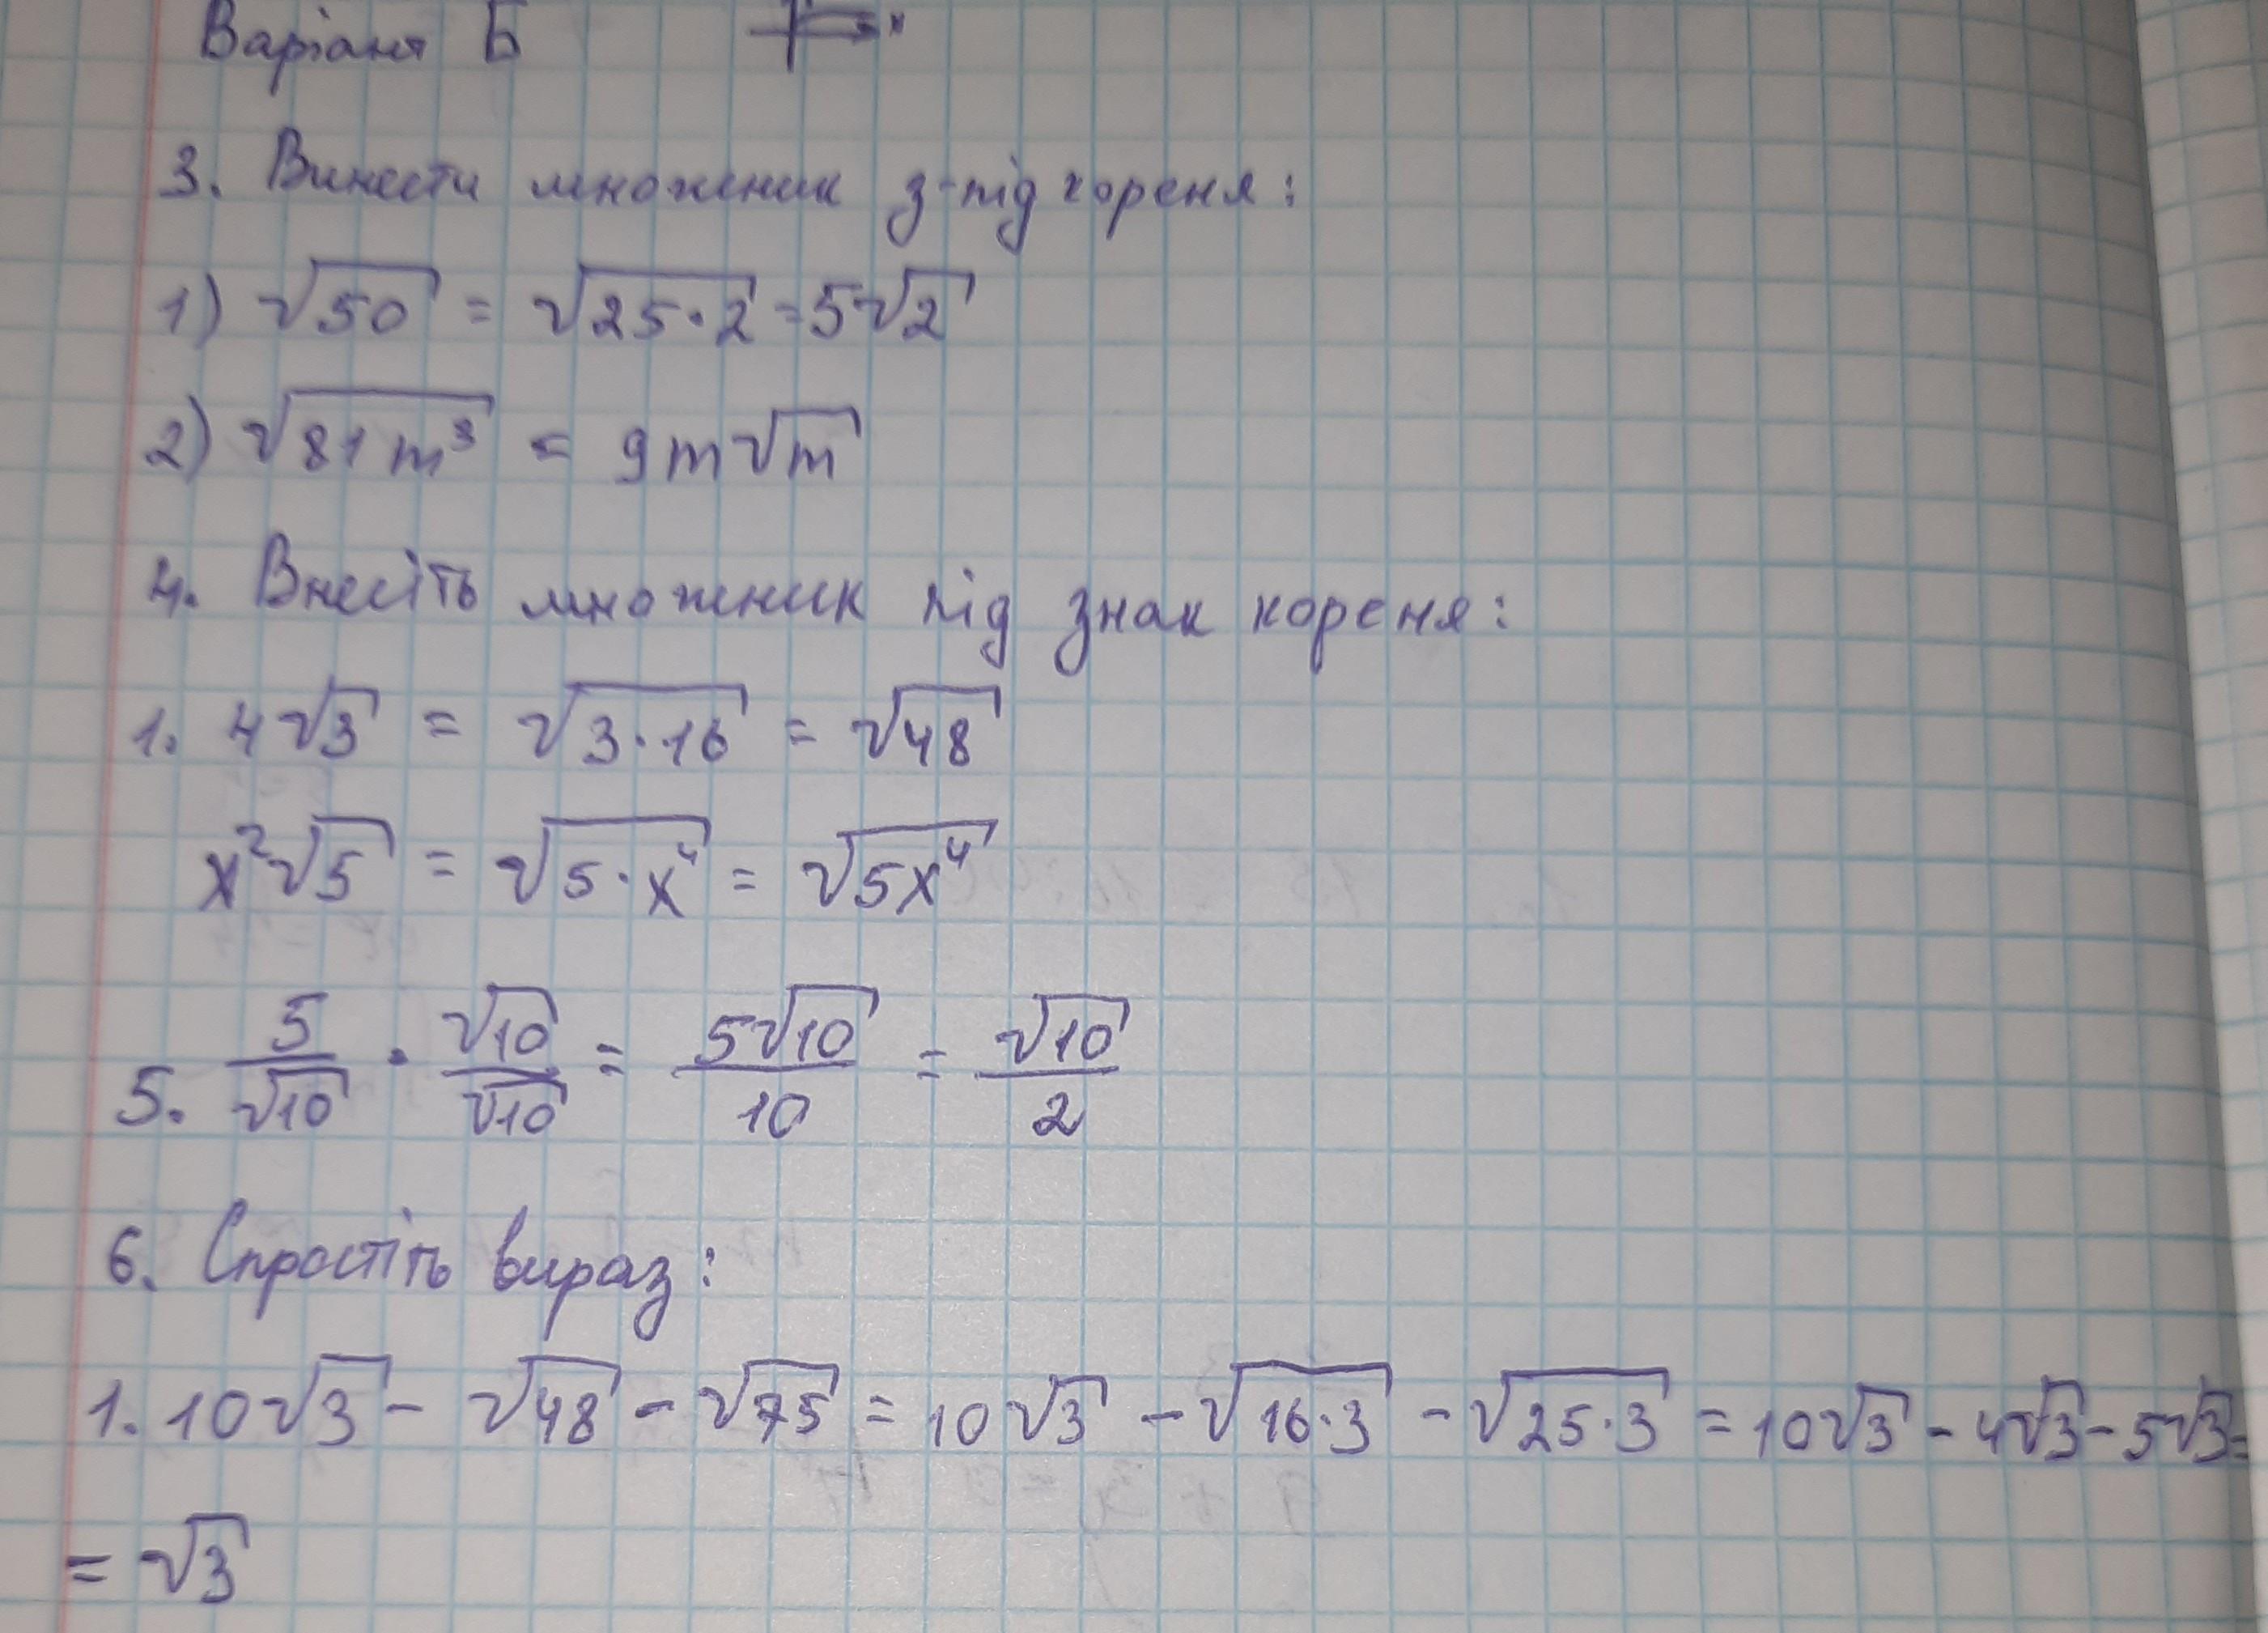 Варіант Б
3. Винести множник з-під кореня:
1) √50 = √25·2 = 5√2
2) √81m³ = 9m√m
4. Внесіть множник під знак кореня:
1. 4√3 = √3·16 = √48
x²√5 = √5·x⁴ = √5x⁴
5. 5/√10 · √10/√10 = 5√10/10 = √10/2
6. Спростіть вираз:
1. 10√3 - √48 - √75 = 10√3 - √16·3 - √25·3 = 10√3 - 4√3 - 5√3 =
= √3